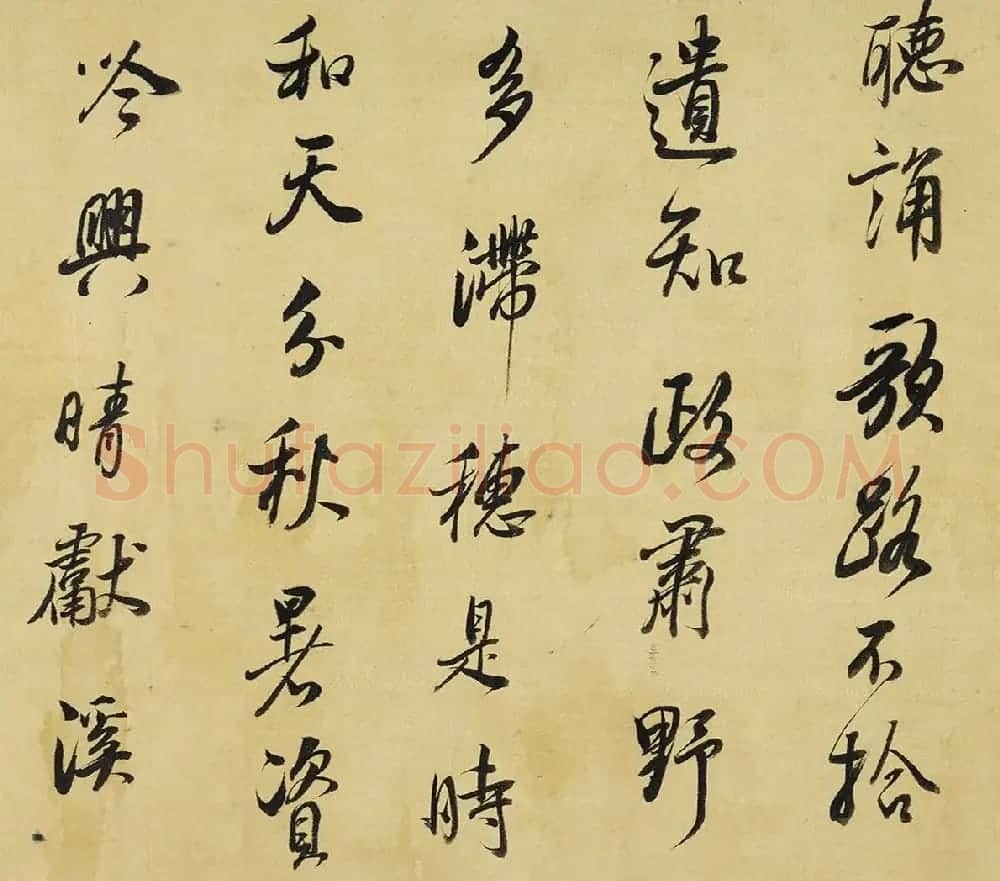 聽誦歌路不拾
遺知政肅野
多滯穗是時
和天分秋暑資
吟興晴獻溪
Shufaziliao.COM